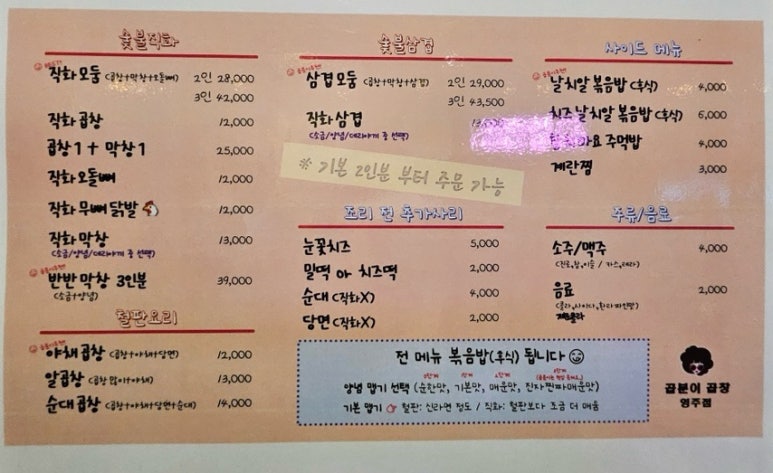 숯불직화
직화모둠 (곱창+막창+오돌뼈) 2인 28,000
3인 42,000
직화 곱창 12,000
곱창1 + 막창1 25,000
직화오돌뼈 12,000
직화 무뼈닭발 12,000
직화 막창 13,000
(소금/양념/데리야끼 중 선택)
반반막창 3인분 39,000
(소금+양념)
철판요리
야채곱창 (곱창+야채+당면) 12,000
알곱창 (곱창많이+야채) 13,000
순대곱창 (곱창+야채+당면+순대) 14,000
숯불삼겹
삼겹모둠 (곱창+막창+삼겹) 2인 29,000
3인 43,500
직화삼겹
(소금/양념/데리야끼 중 선택)
※ 기본 2인분 부터 주문 가능
조리 전 추가사리
눈꽃치즈 5,000
밀떡 or 치즈떡 2,000
순대 (직화X) 4,000
당면 (직화X) 2,000
사이드 메뉴
날치알 볶음밥 (후식) 4,000
치즈 날치알 볶음밥 (후식) 6,000
마요 주먹밥 4,000
계란찜 3,000
주류/음료
소주/맥주 4,000
음료 2,000
전 메뉴 볶음밥(후식) 됩니다
양념 맵기 선택 (순한맛, 기본맛, 매운맛, 진짜찐짜매운맛)
기본 맵기 철판: 신라면 정도 / 직화: 철판보다 조금 더 매움
곱분이 곱창
영주점